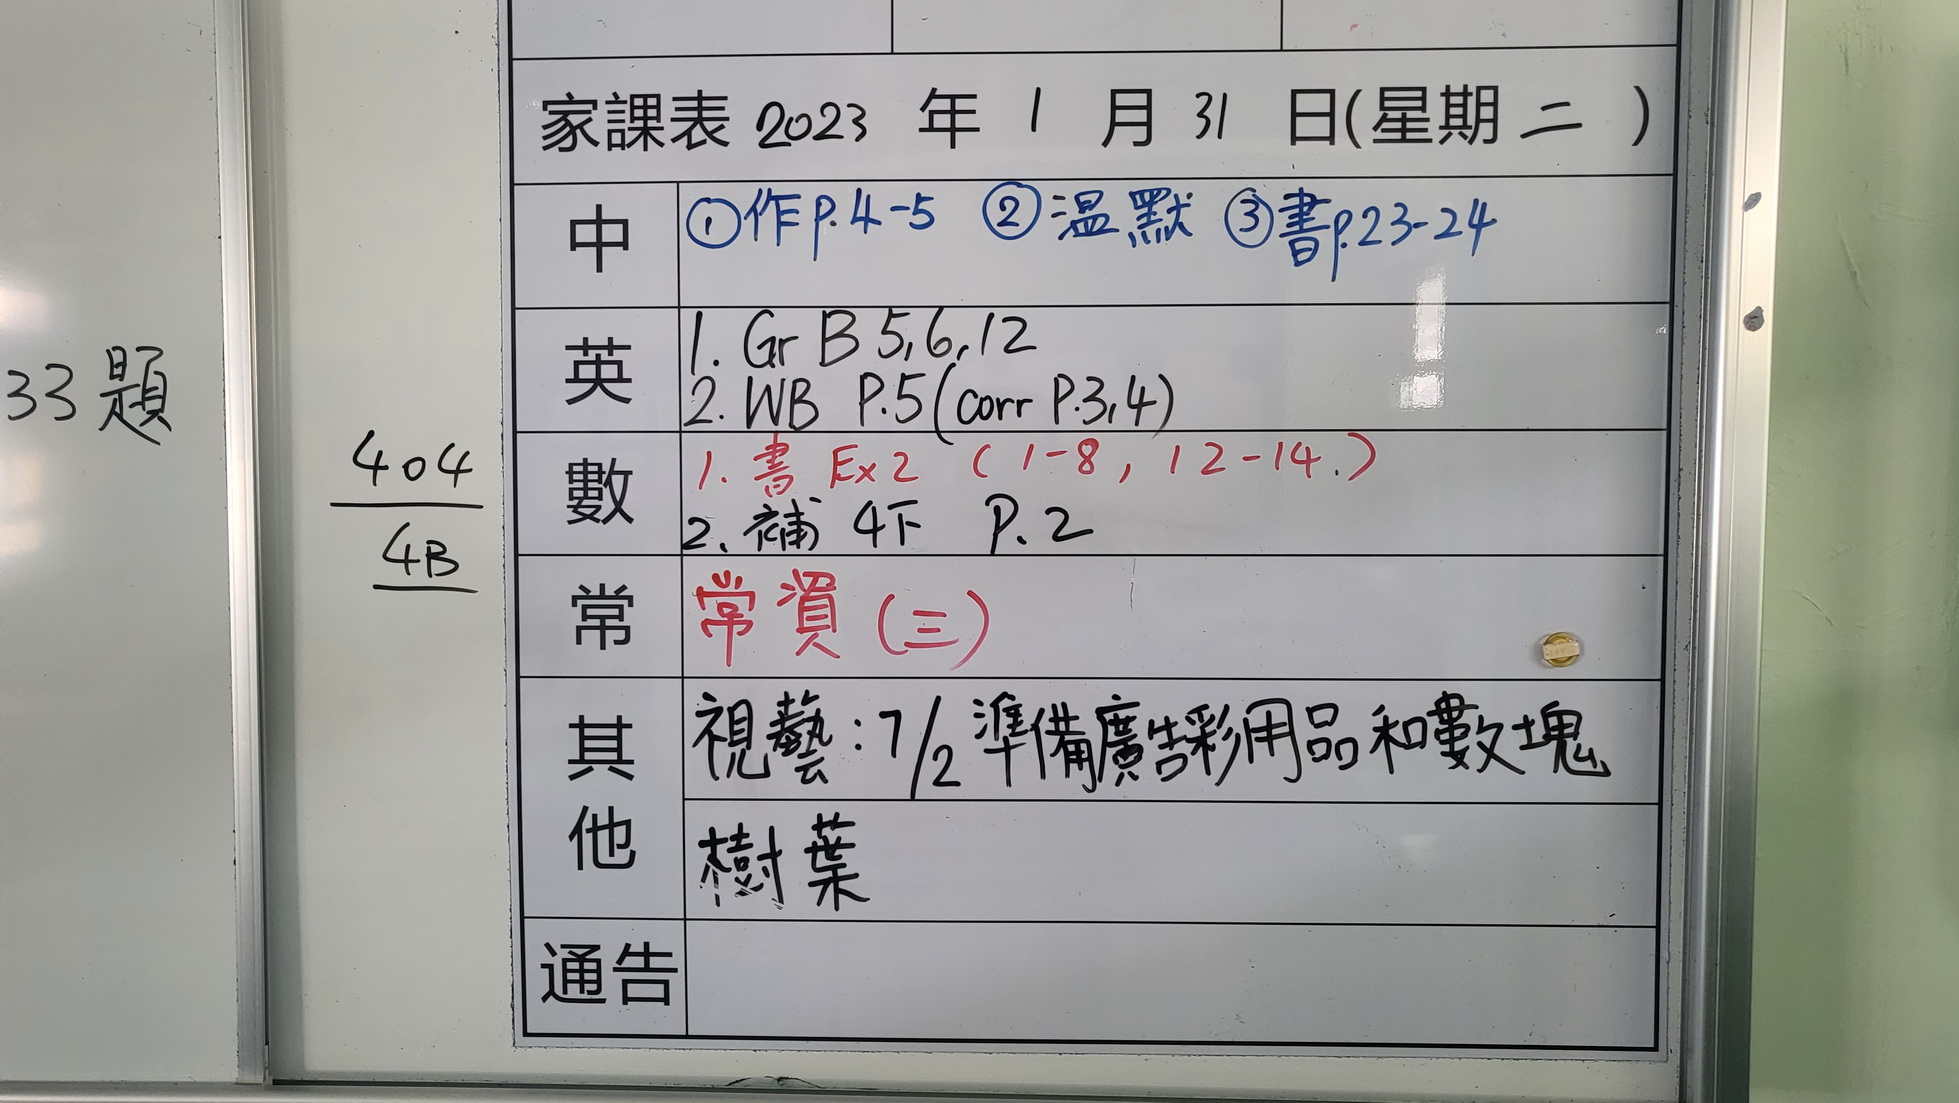 33題
404
4B
家課表 2023 年 1 月 31 日(星期二)
中
①作P.4-5 ②温默 ③書p.23-24
英
1. Gr B 5,6,12
2. WB P.5(corr P.3,4)
數
1. 書 Ex2 (1-8, 12-14.)
2. 補 4下 P.2
常
常資(三)
其他
視藝:7/2 準備廣告彩用品和數塊
樹葉
通告